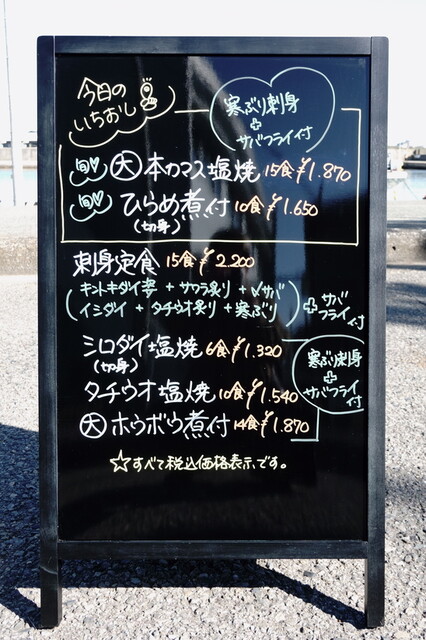 今日の
いちおし
寒ぶり刺身
+
サバフライ付
旬 大 本カマス塩焼 15食 ¥1.870
旬 ひらめ煮付 10食 ¥1.650
(切身)
刺身定食 15食 ¥2.200
(キントキダイ + サワラ炙り + 〆サバ
イシダイ + タチウオ炙り + 寒ぶり)
+ サバ
フライ付
シロダイ塩焼 6食 ¥1.320
(切身)
タチウオ塩焼 10食 ¥1.540
大 ホウボウ煮付 14食 ¥1.870
寒ぶり刺身
+
サバフライ
付
☆すべて税込価格表示です。